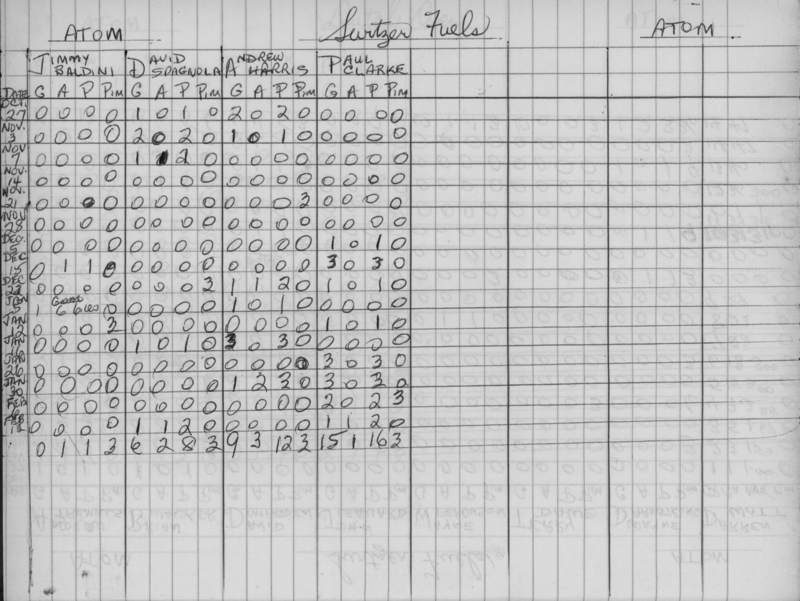 ATOM Surtzer Fuels ATOM
JIMMY DAVID ANDREW PAUL
BALDINI SPAGNOLA HARRIS CLARKE
DATE G A P Pim G A P Pim G A P Pim G A P Pim
OCT. 27 0 0 0 0 1 0 1 0 2 0 2 0 0 0 0 0
NOV. 3 0 0 0 0 2 0 2 0 1 0 1 0 0 0 0 0
NOV 7 0 0 0 0 1 1 2 0 0 0 0 0 0 0 0 0
NOV. 14 0 0 0 0 0 0 0 0 0 0 0 0 0 0 0 0
NOV. 21 0 0 0 0 0 0 0 0 0 0 0 3 0 0 0 0
NOV 28 0 0 0 0 0 0 0 0 0 0 0 0 0 0 0 0
DEC. 5 0 0 0 0 0 0 0 0 0 0 0 0 1 0 1 0
DEC 15 0 1 1 0 0 0 0 0 0 0 0 0 3 0 3 0
DEC 22 0 0 0 0 0 0 0 3 1 1 2 0 1 0 1 0
JAN 5 0 0 0 0 0 1 0 1 0 0 0 0 0
JAN 12 0 0 0 3 0 0 0 0 0 0 0 0 1 0 1 0
JAN 0 0 0 0 1 0 1 0 3 0 3 0 0 0 0 0
JAN 26 0 0 0 0 0 0 0 0 0 0 0 0 3 0 3 0
JAN 30 0 0 0 0 0 0 0 0 1 2 3 0 3 0 3 0
FEB 0 0 0 0 0 0 0 0 0 0 0 0 2 0 2 3
FEB 12 0 0 0 0 1 1 2 0 0 0 0 0 1 1 2 0
0 1 1 3 6 2 8 3 9 3 12 3 15 1 16 3